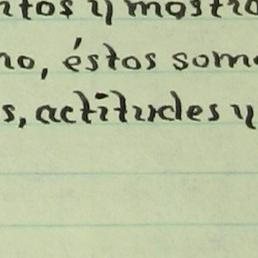 ntos y mostra
no, éstos some
s, actitudes y